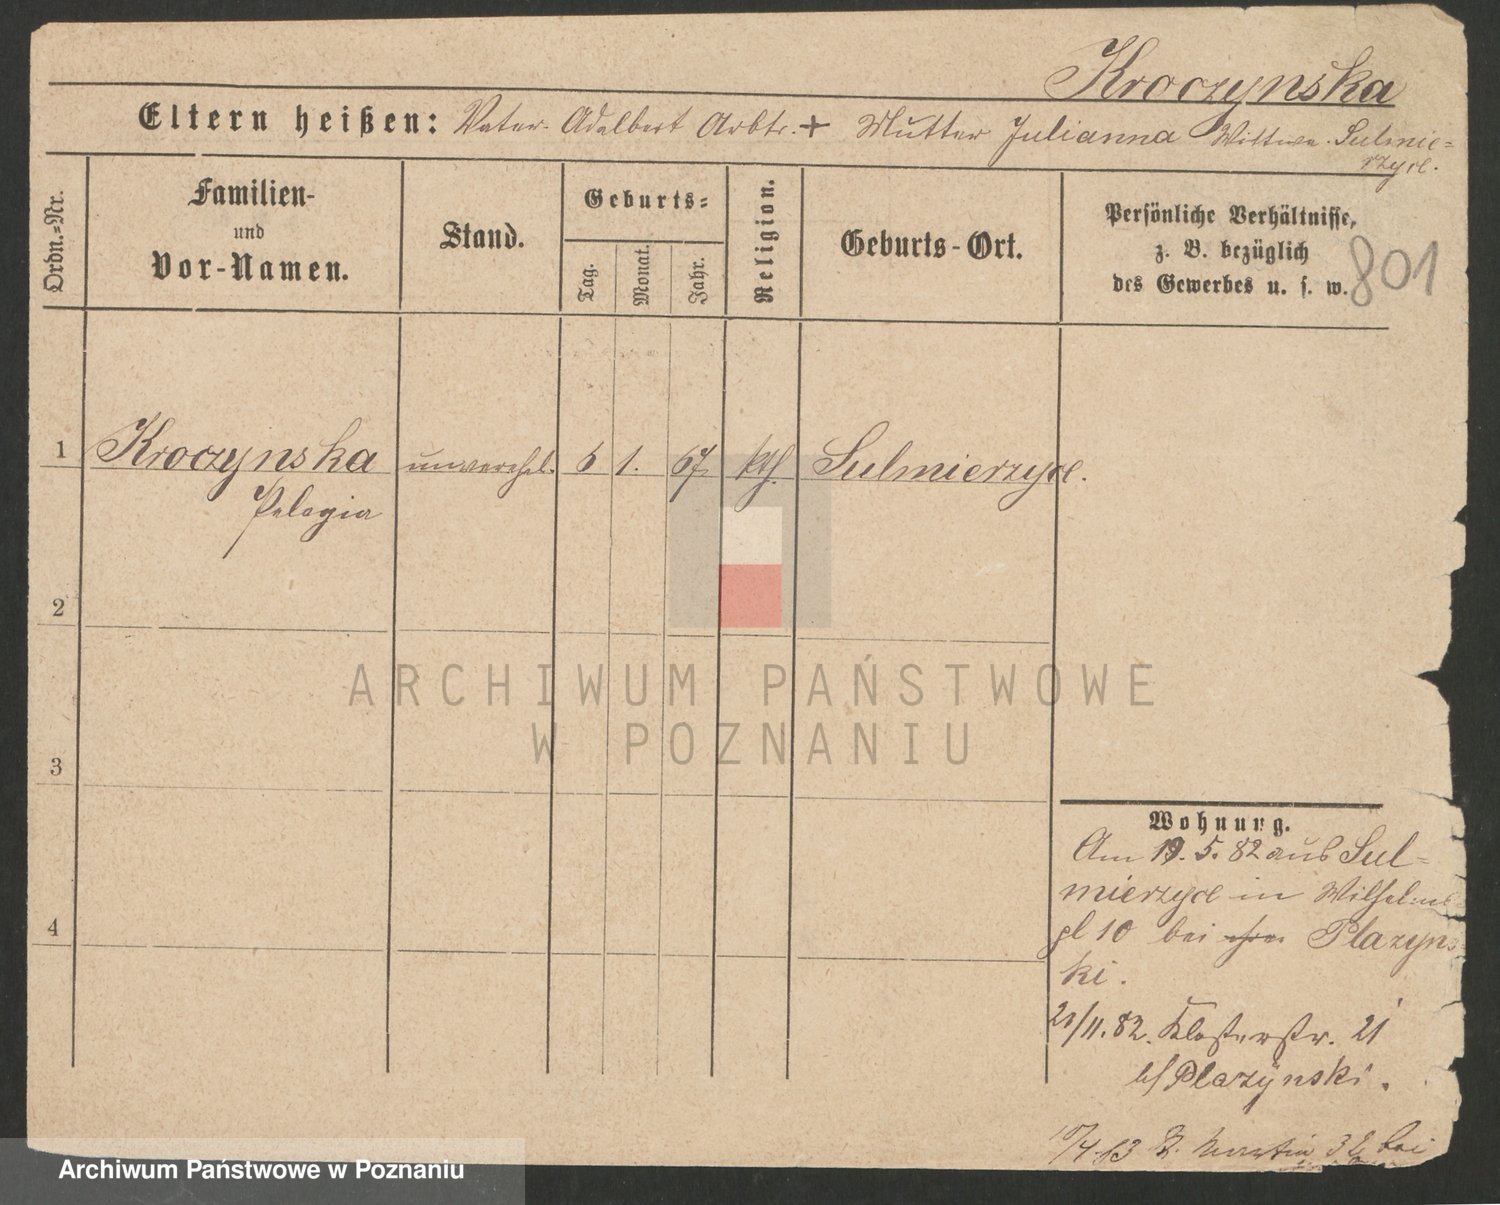 Kroczynska
Eltern heißen: Vater Adalbert Arbtr. + Mutter Julianna Wittwe Sulmie=
rzyce.
Ordn.=Nr.
Familien-
und
Vor-Namen.
Stand.
Geburts=
Tag.
Monat.
Jahr.
Religion.
Geburts-Ort.
Persönliche Verhältnisse,
z. B. bezüglich
des Gewerbes u. s. w.
801
1 Kroczynska unverehel. 6 1. 67 kth. Sulmierzyce.
Pelagia
2
3
4
Wohnung.
Am 19. 5. 82 aus Sul=
mierzyce in Wilhelms
pl 10 bei Plazyns
ki.
/11. 82. Klosterstr. 21
b/ Plazynski.
Martin 32 bei
ARCHIWUM PAŃSTWOWE
W POZNANIU
Archiwum Państwowe w Poznaniu